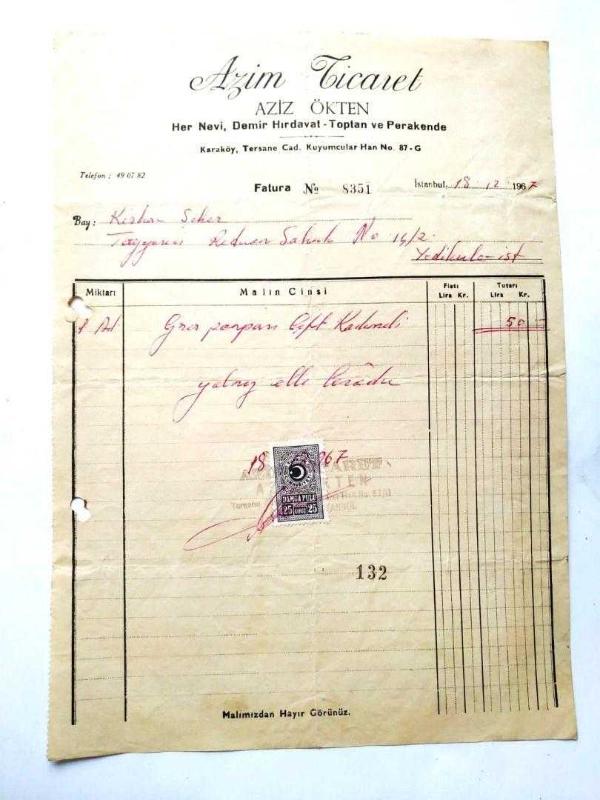 Azim Ticaret
AZİZ ÖKTEN
Her Nevi, Demir Hırdavat - Toptan ve Perakende
Karaköy, Tersane Cad. Kuyumcular Han No. 87-G
Telefon : 49 07 82
Fatura No 8351
İstanbul, 18. 12 1967
Bay: Şeker
No 14/2
Yedikule - ist
Miktarı Malın Cinsi Fiatı Tutarı
Lira Kr. Lira Kr.
1 Ad Gres Çift 50
yalnız elli liradır
18 967
AZİZ ÖKTEN
DAMGA PULU
25 KURUŞ 25
132
Malımızdan Hayır Görünüz.